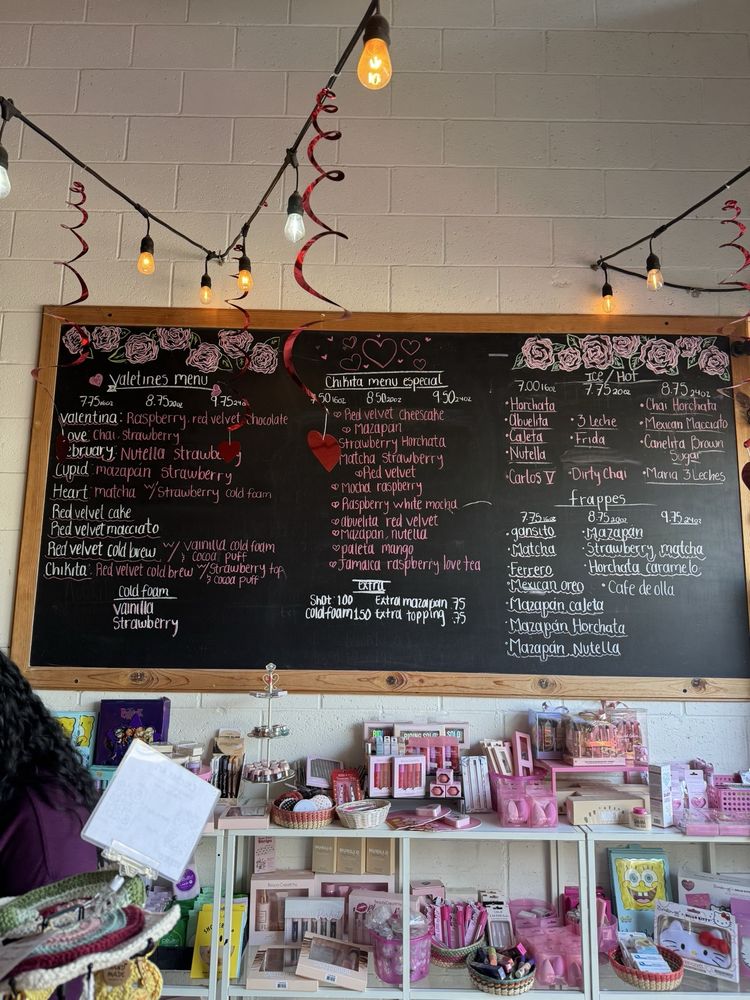 Valetines menu
7.75 16oz 8.75 20oz 9.75 24oz
Valentina: Raspberry, red velvet, chocolate
ove Chai, strawberry
ebruary: Nutella Strawberry
Cupid: mazapan strawberry
Heart: matcha w/ Strawberry cold foam
Red velvet cake
Red velvet macciato
Red velvet cold brew w/ vainilla cold foam
& cocoa puff
Chikita: Red velvet cold brew w/ Strawberry top
& cocoa puff
cold foam
vainilla
Strawberry
Chikita menu especial
50 16oz 8.50 20oz 9.50 24oz
Red velvet Cheescake
Mazapan
Strawberry Horchata
Matcha Strawberry
Red velvet
Mocha raspberry
Raspberry white mocha
abuelita red velvet
Mazapan, nutella
paleta mango
Jamaica raspberry love tea
extra
Shot 1.00 Extra mazapan .75
Cold foam 1.50 Extra topping .75
Ice / Hot
7.00 16oz 7.75 20oz 8.75 24oz
Horchata
Abuelita
Cajeta
Nutella
Carlos V
3 Leche
Frida
Dirty Chai
Chai Horchata
Mexican Macciato
Canelita Brown
Sugar
Maria 3 Leches
frappes
7.75 16oz 8.75 20oz 9.75 24oz
gansito
Matcha
Ferrero
Mexican oreo
Mazapán cajeta
Mazapán Horchata
Mazapán Nutella
Mazapán
Strawberry matcha
Horchata caramelo
Cafe de olla
RIDING SOLO